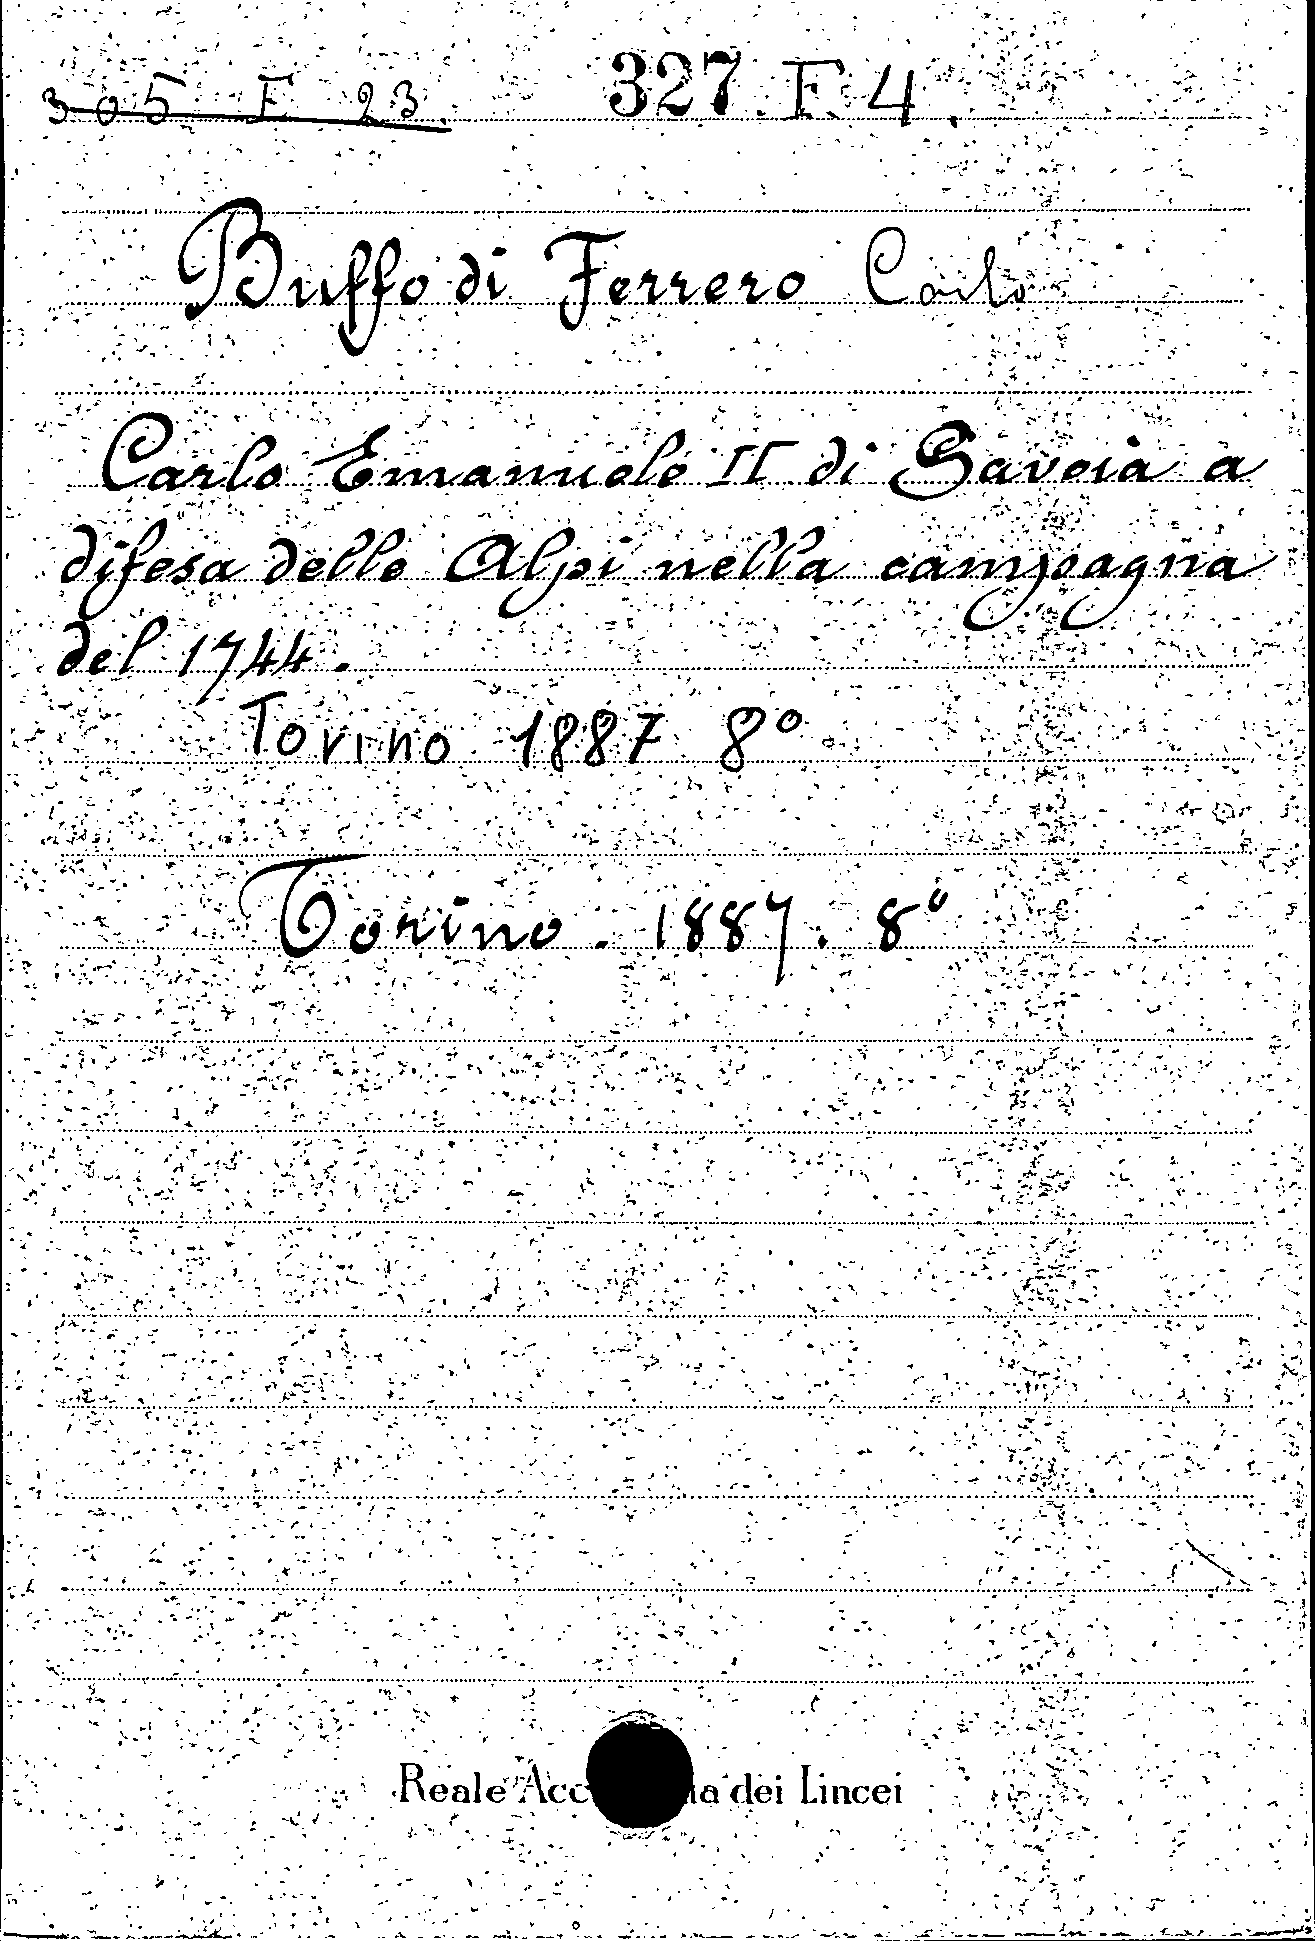 305 F 23. 327. F. 4.
Buffo di Ferrero Carlo
Carlo Emanuele II di Savoia a
difesa delle Alpi nella campagna
del 1744.
Torino 1887 8°
Torino. 1887. 8°
Reale Acc ia dei Lincei